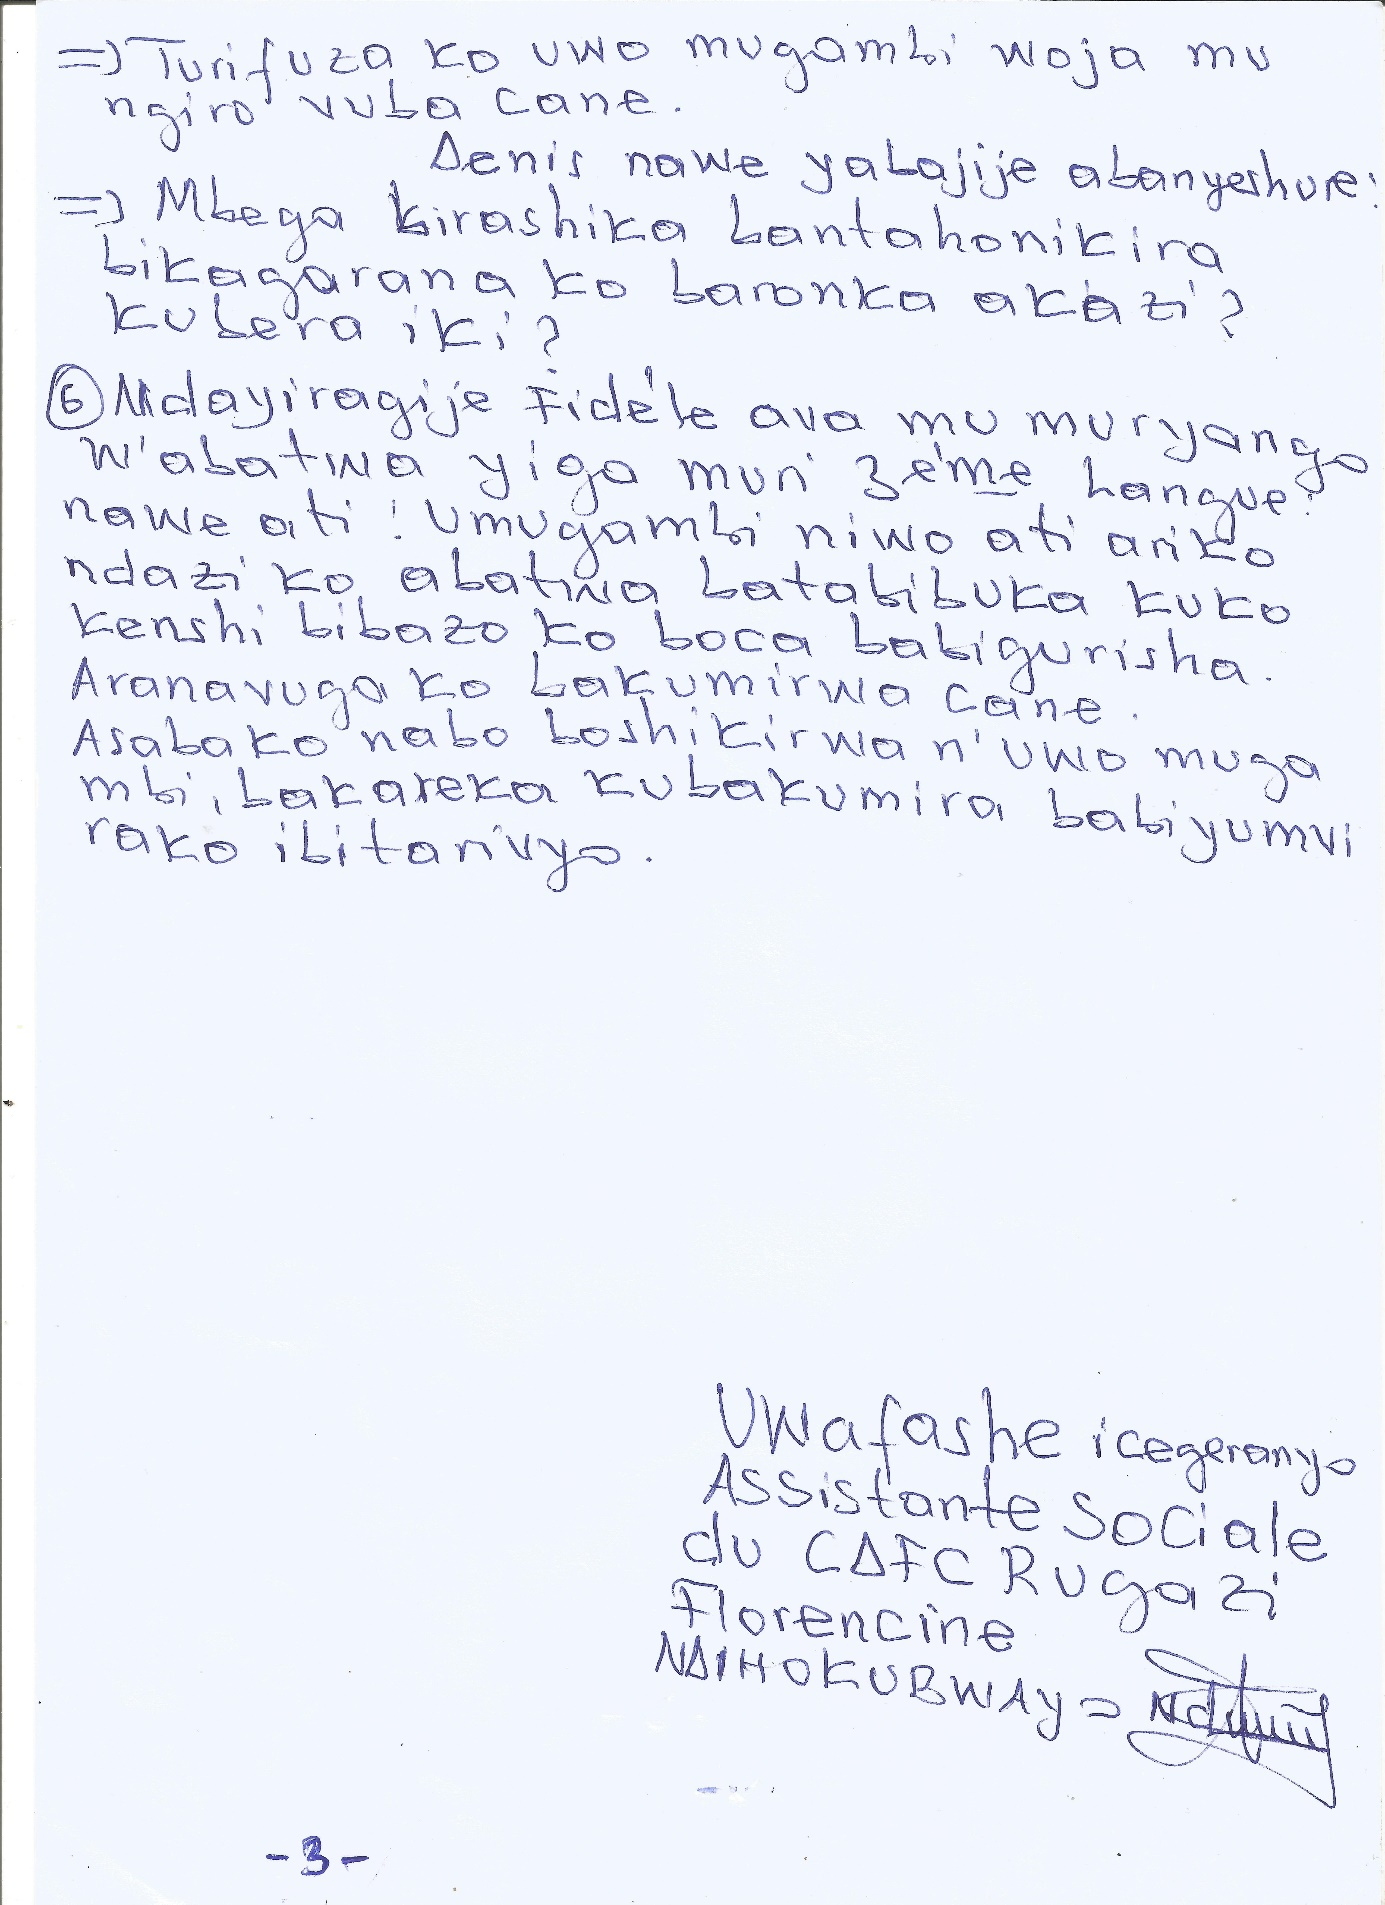 => Turifuza ko uwo mugambi woja mu
ngiro vuba cane.
Denis nawe yabajije abanyeshure:
=> Mbega birashika bantahonikira
bikagarana ko baronka akazi?
Kubera iki?
6 Ndayiragije Fidèle ava mu muryango
w'abatwa yiga muri 3ème Langue:
nawe ati! Umugambi niwo ati ariko
ndazi ko abatwa batabibuka kuko
kenshi bibazo ko boca babigurisha.
Aranavuga ko bakumirwa cane.
Asabako nabo boshikirwa n'uwo muga
mbi, bakareka kubakumira babiyumvi
rako ibitarivyo.
Uwafashe icegeranyo
Assistante Sociale
du CDFC Rugazi
Florencine
NDIHOKUBWAYO
-3-